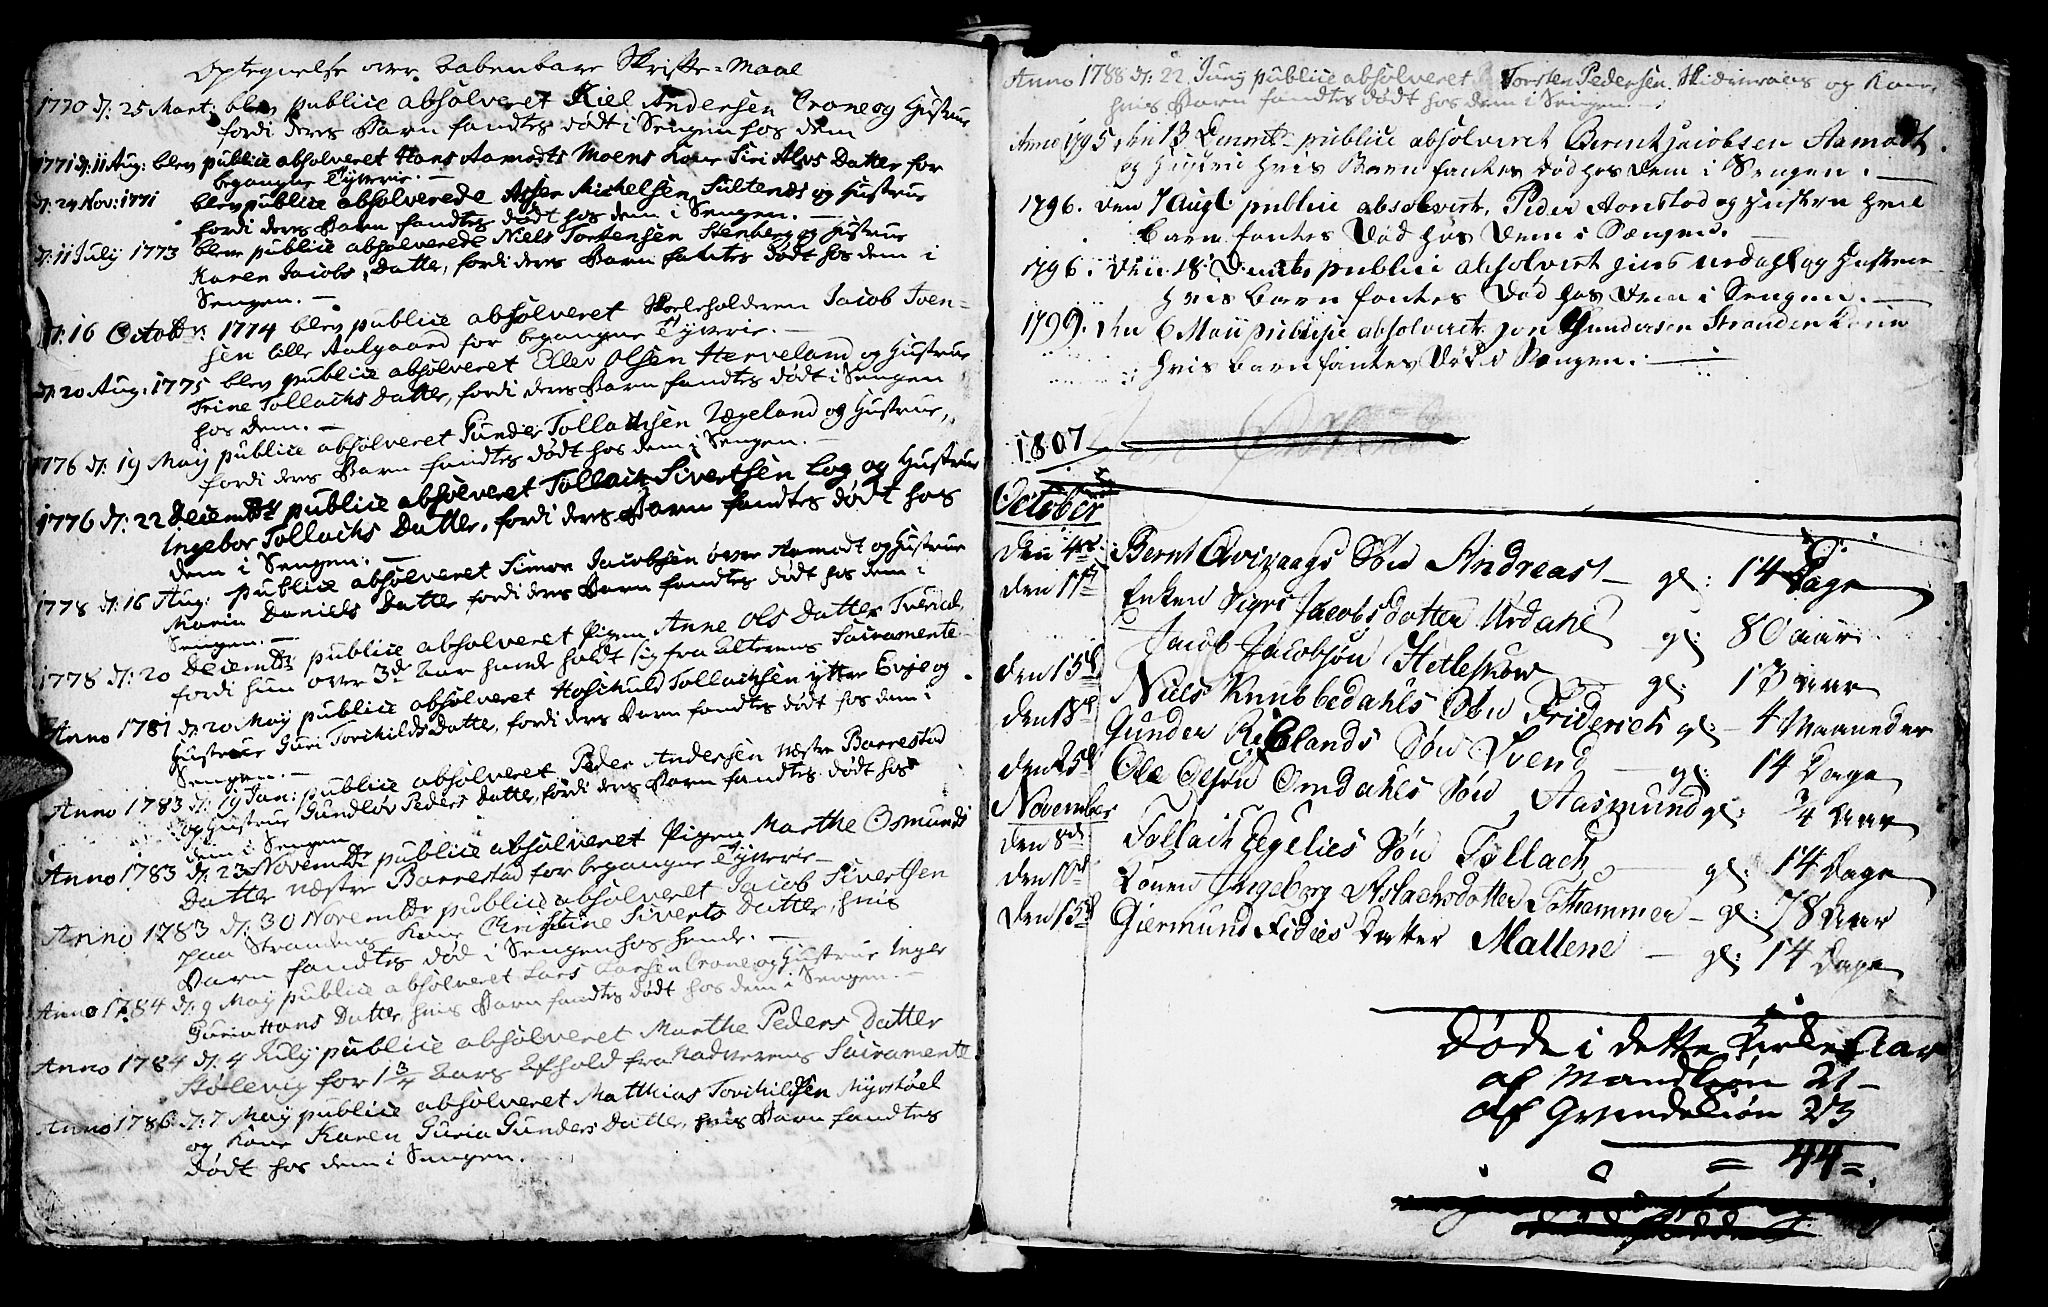 Optegnelse over Aabenbare Skrifte-Maal
1770 d: 25 Mart: blev publice absolveret Kiel Andersen Crone og Hustrue
fordi deres Barn fandtes dödt i Sengen hos dem
1771 d: 11 Aug: blev publice absolveret Hans Aamodts Moens Kone Siri Alvs Datter for
begangne Tyverie. —
d: 24 Nov: 1771 blev publice absolverede Asser Michelsen Sultenæs og Hustrue
fordi deres Barn fandtes dödt hos dem i Sengen. —
d: 11 July 1773 blev publice absolverede Niels Torkensen Stenberg og Hustrue
Karen Jacobs Datter, fordi deres Barn fantes dödt hos dem i
Sengen. —
d: 16 Octobr: 1774 blev publice absolveret Jacob Iven-
sen lille Aalgaard for begangne Tyverie. —
d: 20 Aug: 1775 blev publice absolveret Ellev Olsen Herveland og Hustrue
Trine Tollachs Datter, fordi deres Barn fandtes dödt i Sengen
hos dem. —
1776 d: 19 Maij publice absolveret Gunder Tollachsen Ægeland og Hustrue,
fordi deres Barn fandtes dödt hos dem i Sengen. —
1776 d: 22 Decembr publice absolveret Tollach Sivertsen Log og Hustrue
Ingebor Tollachs Datter, fordi deres Barn fandtes dödt hos
dem i Sengen. —
1778 d: 16 Aug: publice absolveret Simon Jacobsen övre Aamodt og Hustrue
Maria Daniels Datter fordi deres Barn fandtes dödt hos dem i
Sengen. —
1778 d: 20 Decembr publice absolveret Pigen Anne Ols Datter
fordi hun over 3de Aar havde holdt sig fra Alterens Sacramente
Anno 1781 d: 20 Maij publice absolveret Hoschuld Tollachsen ytter Evje og
Hustrue Guri Torchilds Datter, fordi deres Barn fandtes dödt hos dem i
Sengen. —
Anno 1783 d: 19 Jan: publice absolveret Peder Andersen Næstre Barrestad
og Hustrue Gundlöv Peders Datter, fordi deres Barn fandtes dödt hos
dem i Sengen
Anno 1783 d: 23 Novembr publice absolveret Pigen Marthe Osmunds
Datter Næstre Barrestad for begangne Tyverie —
Anno 1783 d: 30 Novembr publice absolveret Jacob Sivertsen
paa Strandens Kone Christine Siverts Datter, hvis
Barn fandtes död i Sengen hos hende. —
Anno 1784 d: 9 Maij publice absolveret Lars Larsen Crone og Hustrue Inger
Guria Hans Datter, hvis Barn fandtes dödt hos dem i Sengen. —
Anno 1784 d: 4 July publice absolveret Marthe Peders Datter
Stölevig for 1 3/4 Aars Afhold fra Nadverens Sacramente
Anno 1786 d: 7 Maij publice absolveret Matthias Torchildsen Myrstöel
og Kone Karen Guria Gunders Datter, hvis Barn fandtes
dödt hos dem i Sengen.
Anno 1788 d: 22 Junij publice absolveret Torsten Pedersen og Kone,
hvis Barn fandtes dödt hos dem i Sengen.
Anno 1795, den 13 Decembr publice absolveret Berent Jacobsen Aamodt
og Hustrue hvis Barn fantes död hos dem i Sengen. —
1796. den 7 Augt publice absolvert, Peder Aonstad og Hustru hvis
Barn fantes död hos dem i Sengen. —
1796. den 18 Decembr publice absolvert Jens Urdahl og Hustrue
hvis barn fantes död hos dem i Sengen. —
1799. den 6 Maii publice absolveret Jon Gundersen Stranden Kone
hvis barn fantes död i Sengen. —
1807
October
den 4de Bernt Qvizaags Sön Andreas — gl: 14 Dage
den 11te Enken Sigri Jacobsdatter Urdahl gl: 80 aar
Jacob Jacobsön Hetleskow — gl: 13 aar
den 15de Niels Knibbedahls Sön Friderich gl: — 4 Maaneder
den 18de Gunder Røelands Sön Svend — gl: 14 Dage
den 25de Ole Olsön Omdahls Sön Aasmund gl: 3/4 Aar
November
den 8de Tollach Egelies Sön Tollach — gl: 14 Dage
den 10de Konen Ingeborg Aslachsdatter Tothammer — gl: 78 Aar
den 15de Giermund Fidies Datter Mallene — gl: 14 Dage
Döde i dette Kirke Aar
af Mandkiön 21 —
af Qvindekiön 23
= 44 =